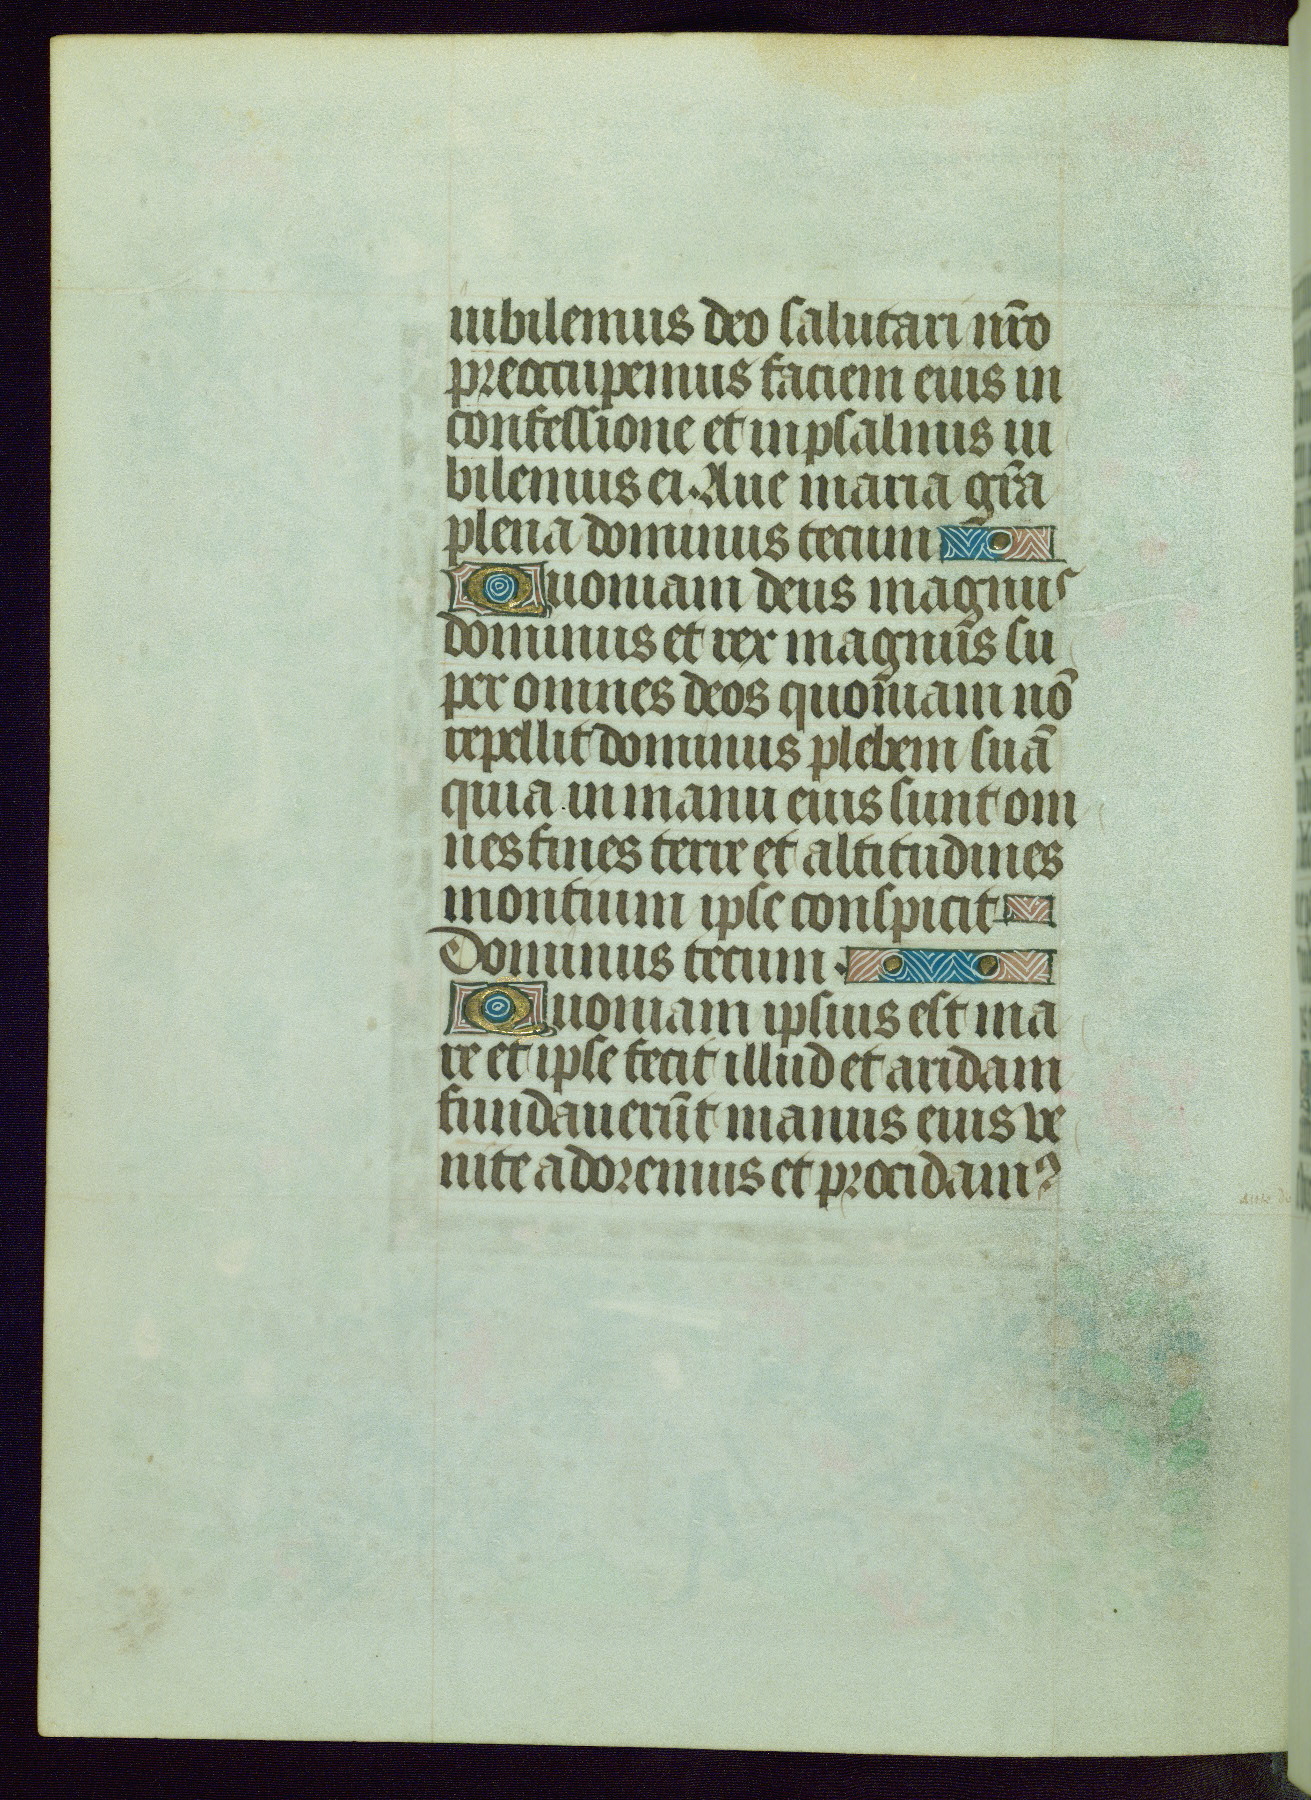 iubilemus deo salutari nr̄o
preoccupemus faciem eius in
confessione et in psalmis iu
bilemus ei. Aue maria gr̄a
plena dominus tecum
Quoniam deus magnus
dominus et rex magnus su
per omnes deos quoniam nō
repellit dominus plebem suā
quia in manu eius sunt om
nes fines terre et altitudines
montium ipse conspicit
Dominus tecum.
Quoniam ipsius est ma
re et ipse fecit illud et aridam
fundauerūt manus eius ve
nite adoremus et procidamꝰ